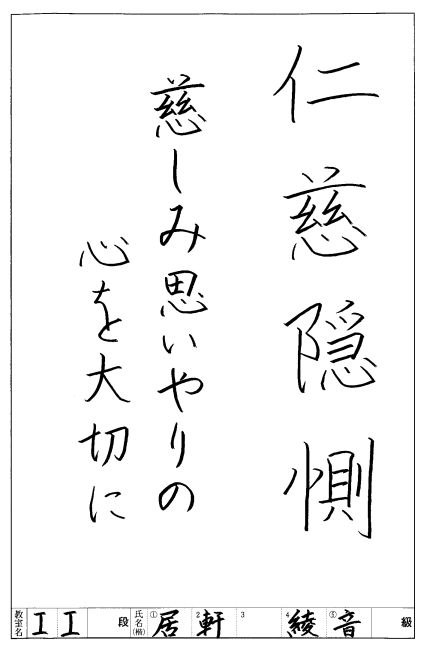 仁慈隠惻
慈しみ思いやりの
心を大切に
教室名 エエ 段 氏名(楷) ① 居 2 軒 3 4 綾 ⑤ 音 級